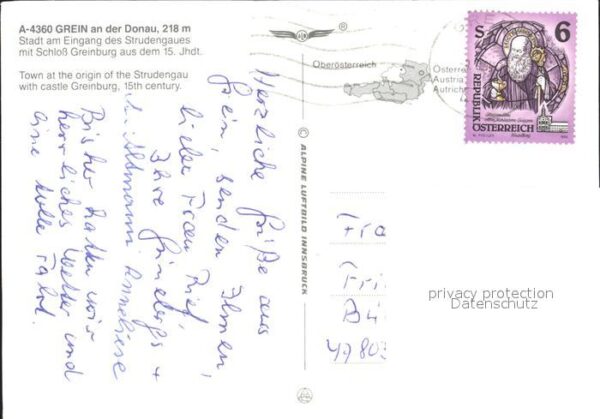 A-4360 GREIN an der Donau, 218 m
Stadt am Eingang des Strudengaues
mit Schloß Greinburg aus dem 15. Jhdt.
Town at the origin of the Strudengau
with castle Greinburg, 15th century.
Herzliche Grüße aus
Grein, senden Ihnen,
liebe Frau Rief,
Ihre Grünebergs +
Altmann Anneliese
Bisher hatten wir
herrliches Wetter und
eine tolle Fahrt.
© ALPINE LUFTBILD INNSBRUCK
Oberösterreich
Österreich
Austria
Autriche
S 6
REPUBLIK
ÖSTERREICH
Fra
Fri
Bü
49803
privacy protection
Datenschutz